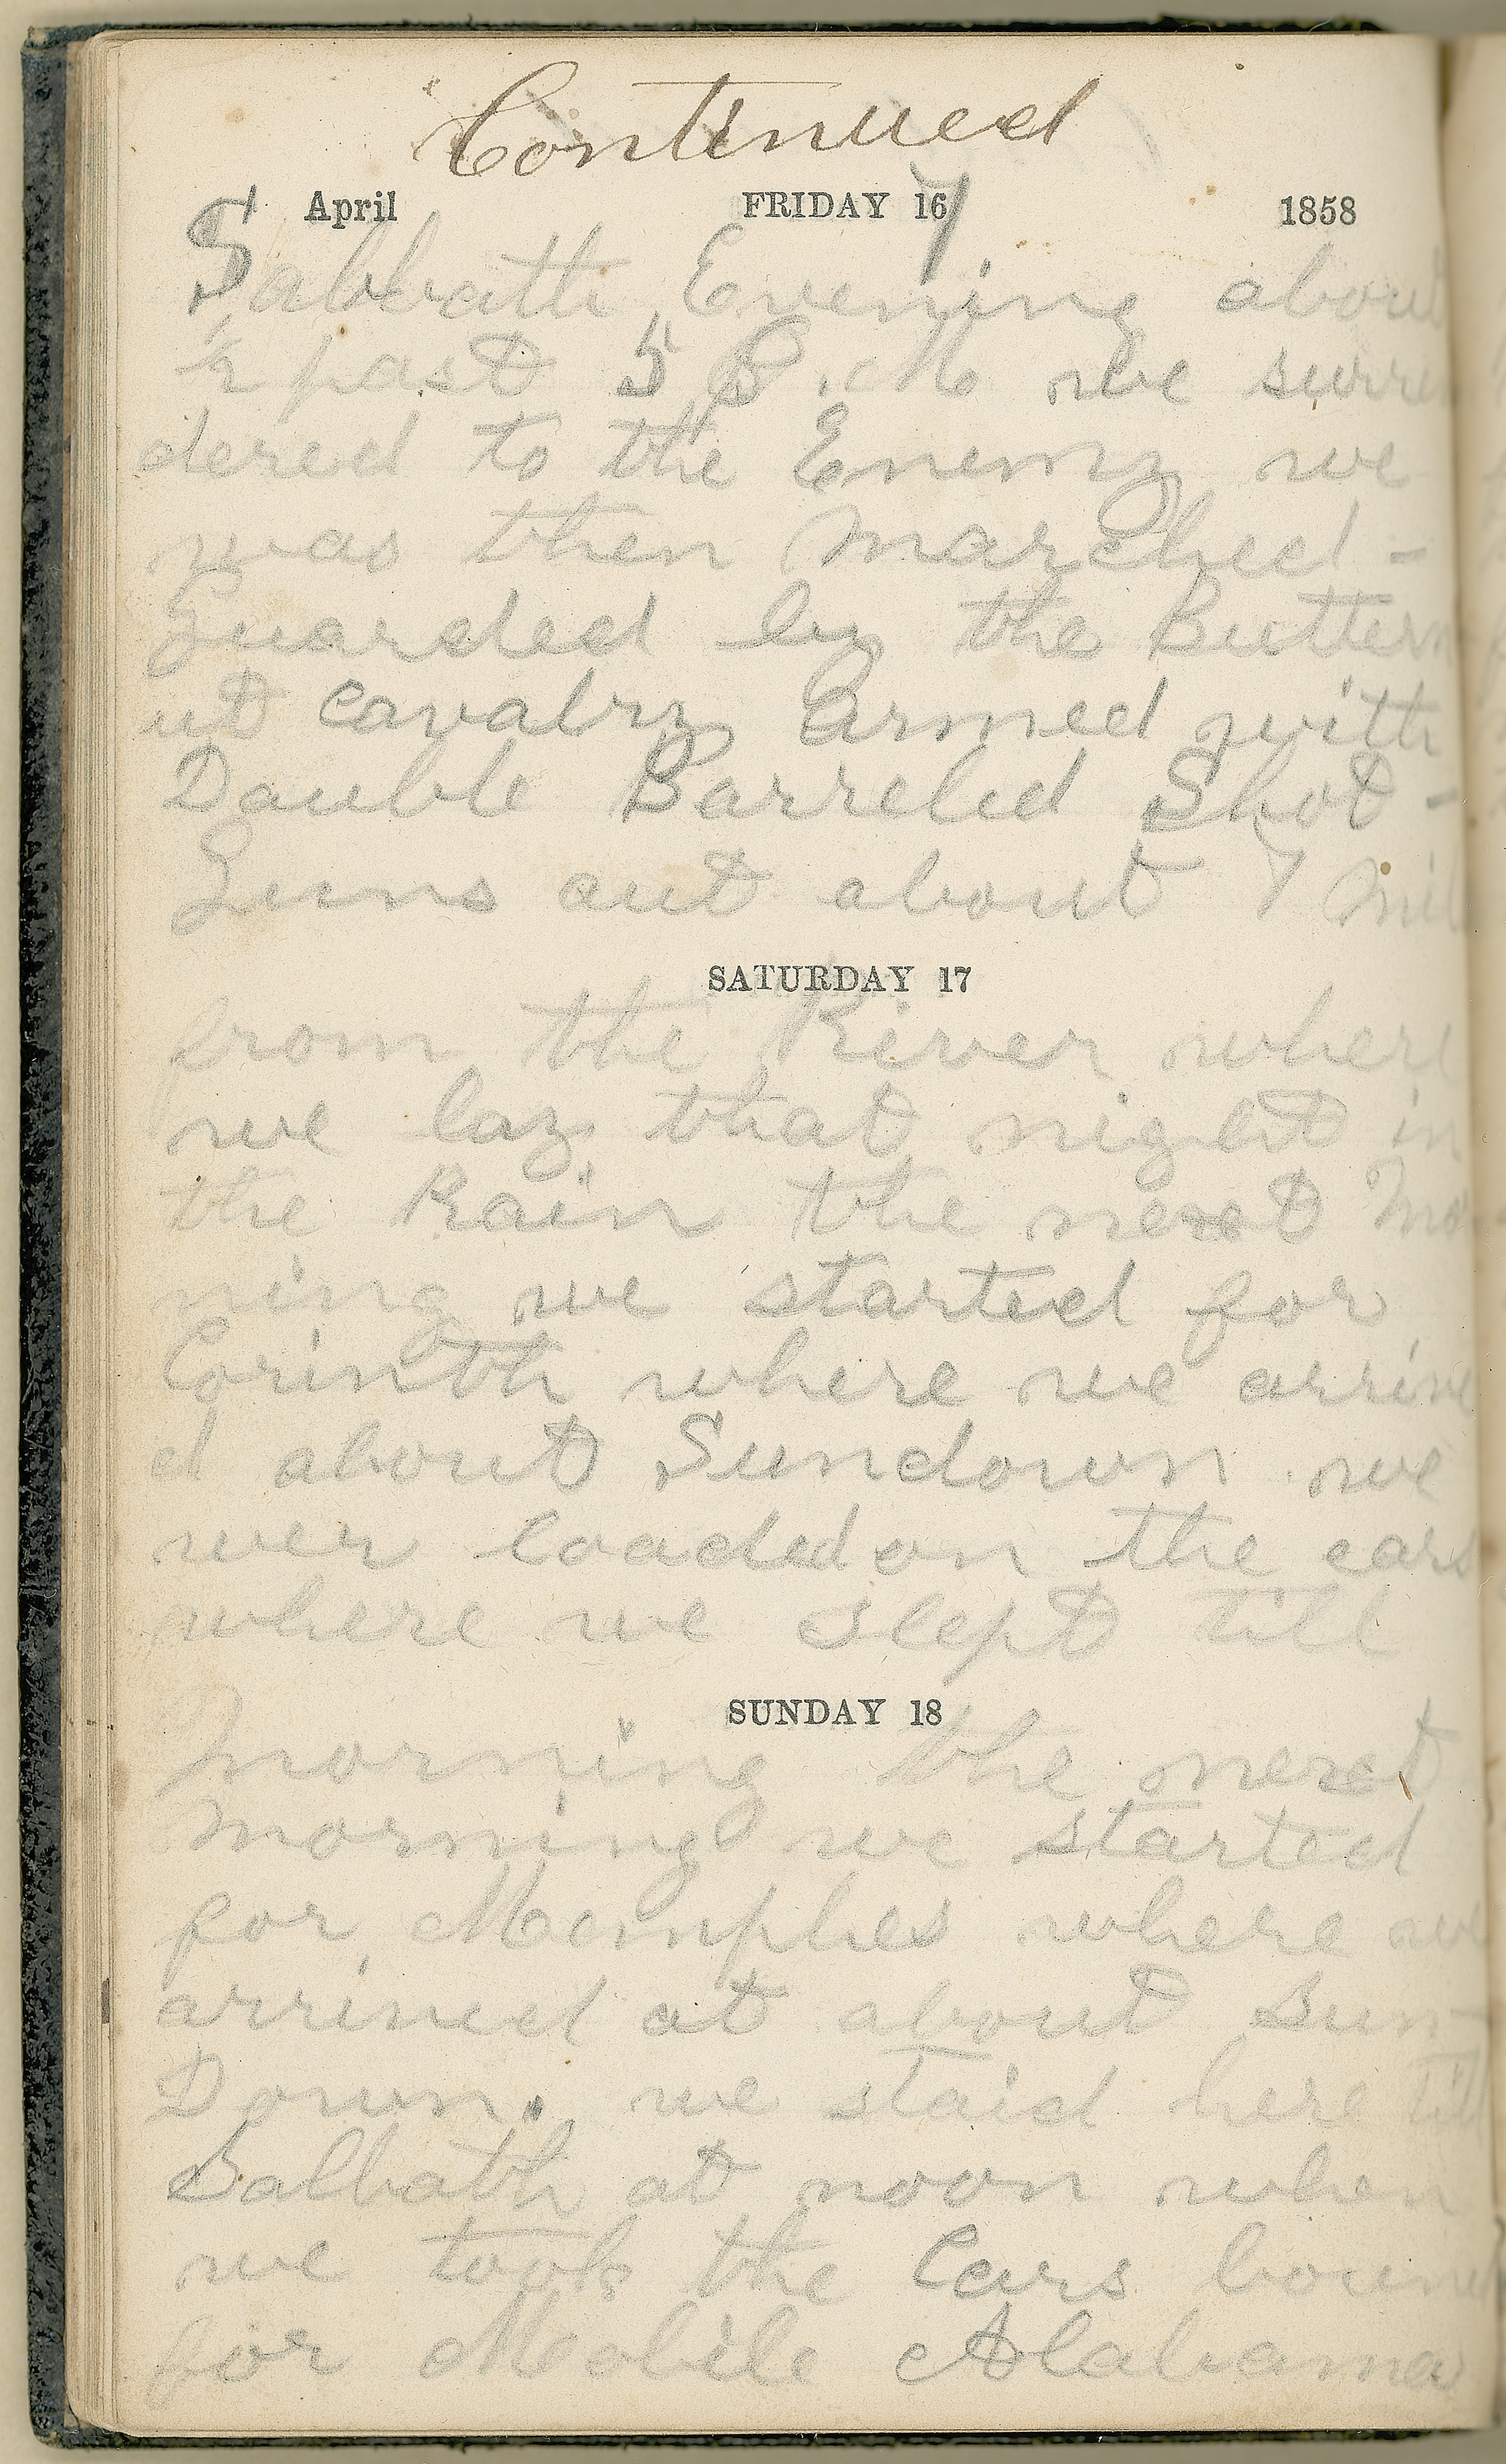 Continued
April FRIDAY 16 1858
7
Sabbath Evening about
½ past 5 P. M we surren
dered to the Enemy we
was then Marched -
Guarded by the Buttern
ut Cavalry Armed with
Double Barreled Shot -
Guns out about 7 Mil
SATURDAY 17
from the River where
we lay that night in
the Rain the next Mor
ning we started for
Corinth where we arrive
d about Sundown we
wer loaded on the cars
where we slept till
SUNDAY 18
Morning the next
Morning we started
for Memphes where we
arrived at about Sun-
Down. we staid here till
Sabbath at noon when
we took the Cars bound
for Mobile Alabama